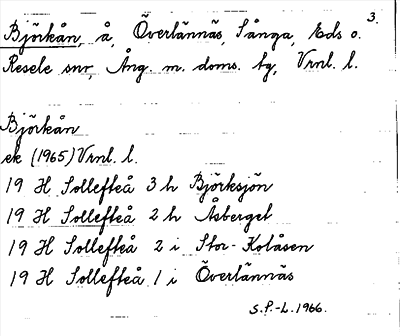 3.
Björkån, å, Överlännäs, Sånga, Eds o.
Resele snr, Ång. m. doms. tg, Vrnl. l.
Björkån
ek (1965) Vrnl. l.
19 H Sollefteå 3 h Björksjön
19 H Sollefteå 2 h Åsberget
19 H Sollefteå 2 i Stor-Kolåsen
19 H Sollefteå 1 i Överlännäs
S.P.-L. 1966.